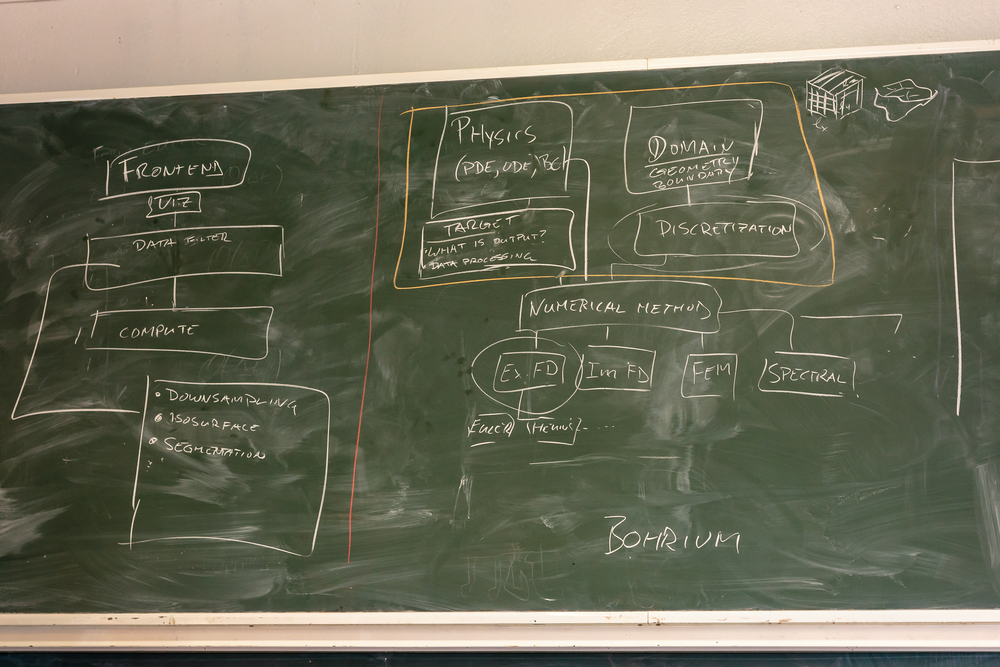 FRONTEND
VIZ
DATA FILTER
COMPUTE
• DOWNSAMPLING
• ISOSURFACE
• SEGMENTATION
PHYSICS
(PDE, ODE, BC)
TARGET
• WHAT IS OUTPUT?
• DATA PROCESSING
DOMAIN
GEOMETRY
BOUNDARY
DISCRETIZATION
NUMERICAL METHOD
Ex. FD
Im FD
FEM
SPECTRAL
EULER
BOHRIUM